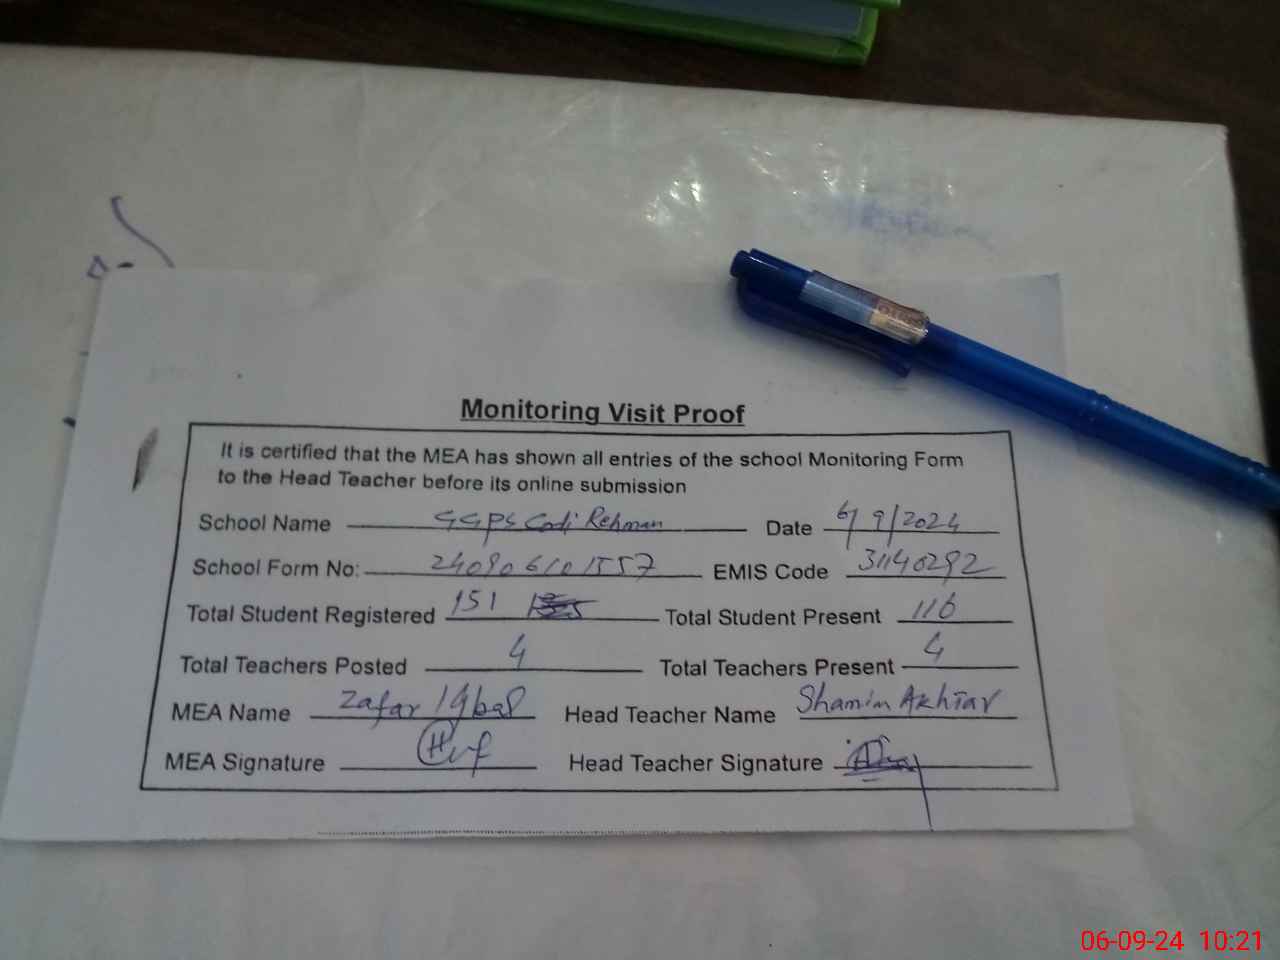 Monitoring Visit Proof
It is certified that the MEA has shown all entries of the school Monitoring Form
to the Head Teacher before its online submission
School Name GGPS Codi Rehman Date 6/9/2024
School Form No: 240906101557 EMIS Code 31140292
Total Student Registered 151 Total Student Present 116
Total Teachers Posted 4 Total Teachers Present 4
MEA Name Zafar Iqbal Head Teacher Name Shamim Akhtar
MEA Signature Head Teacher Signature
06-09-24 10:21